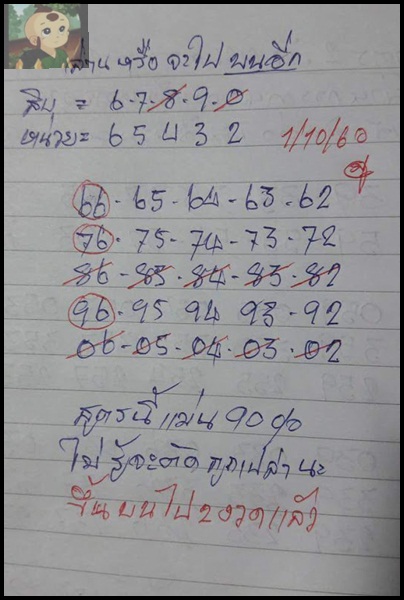 ล่าง หรือ จะไป บนอีก
สิบ = 6-7-8-9-0
หน่วย= 6 5 4 3 2 1/10/60
66-65-64-63-62
76-75-74-73-72
86-85-84-83-82
96-95 94 93-92
06-05-04-03-02
สูตรนี้ แม่น 90%
ไม่ รู้จะตัด ถูกเปล่านะ
ขึ้นบนไป 2 งวดแล้ว